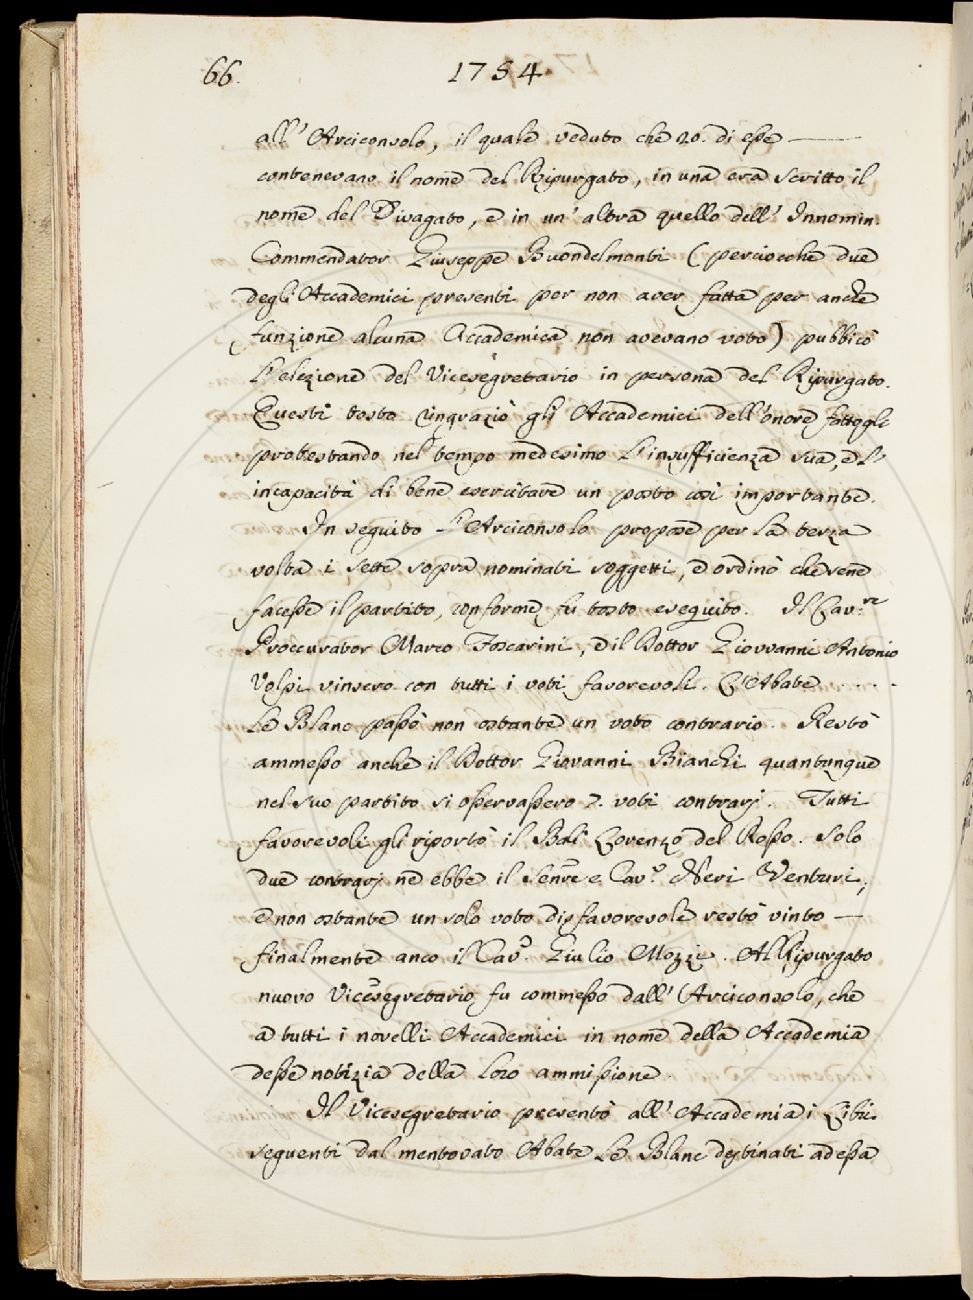 66.
1754.
all' Arciconsolo, il quale veduto che 20. di esse ———
contenevano il nome del Ripurgato, in una era scritto il
nome del Divagato, e in un' altra quello dell' Innomin.
Commendator Giuseppe Buondelmonti (perciocchè due
degli Accademici presenti per non aver fatta per anche
funzione alcuna Accademica non avevano voto) pubbicò
l'elezione del Vicesegretario in persona del Ripurgato.
Questi tosto ringraziò gli Accademici dell'onore fattogli
protestando nel tempo medesimo l'insufficienza sua, e l'
incapacità di bene esercitare un posto così importante.
In seguito l'Arciconsolo propose per la terza
volta i sette sopra nominati soggetti, e ordinò che sene
facesse il partito, conforme fu tosto eseguito. Il Cav.re
Proccurator Marco Foscarini, e il Dottor Giovanni Antonio
Volpi vinsero con tutti i voti favorevoli. L'Abate . . . .
Le Blanc passò non ostante un voto contrario. Restò
ammesso anche il Dottor Giovanni Bianchi quantunque
nel suo partito si osservassero 7. voti contrarj. Tutti
favorevoli gli riportò il Balì Lorenzo del Rosso. Solo
due contrarj ne ebbe il Senre e Cav.e Neri Venturi,
e non ostante un solo voto disfavorevole restò vinto —
finalmente anco il Cav.e Giulio Mozzi. Al Ripurgato
nuovo Vicesegretario fu commesso dall' Arciconsolo, che
a tutti i novelli Accademici in nome della Accademia
desse notizia della loro ammissione.
Il Vicesegretario presentò all' Accademia i Libri
seguenti dal mentovato Abate Le Blanc destinati ad essa